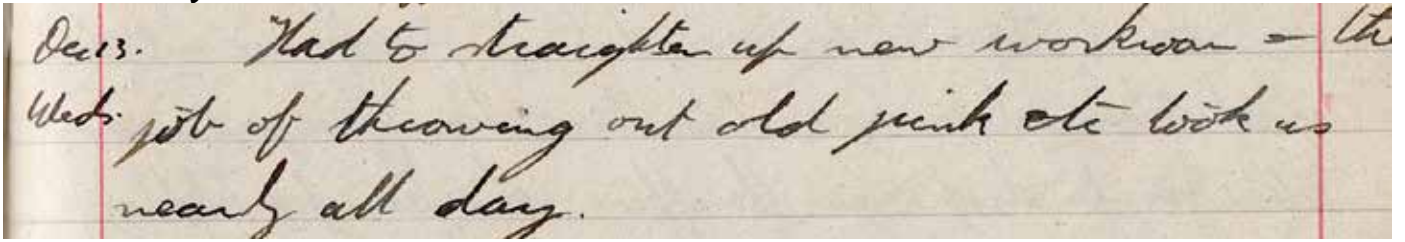 Dec 13. Had to straighten up new workroom – the
Weds. job of throwing out old junk etc took us
nearly all day.